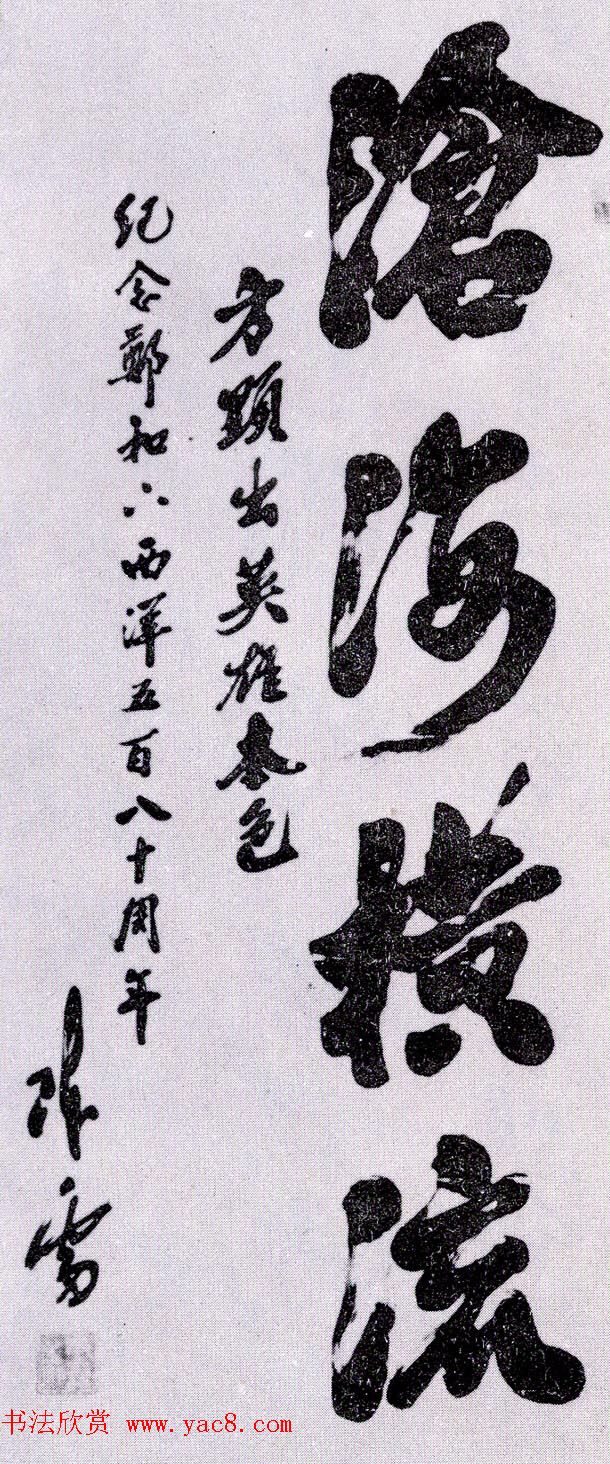 滄海横流
方顯出英雄本色
纪念鄭和下西洋五百八十周年
书法欣赏 www.yac8.com